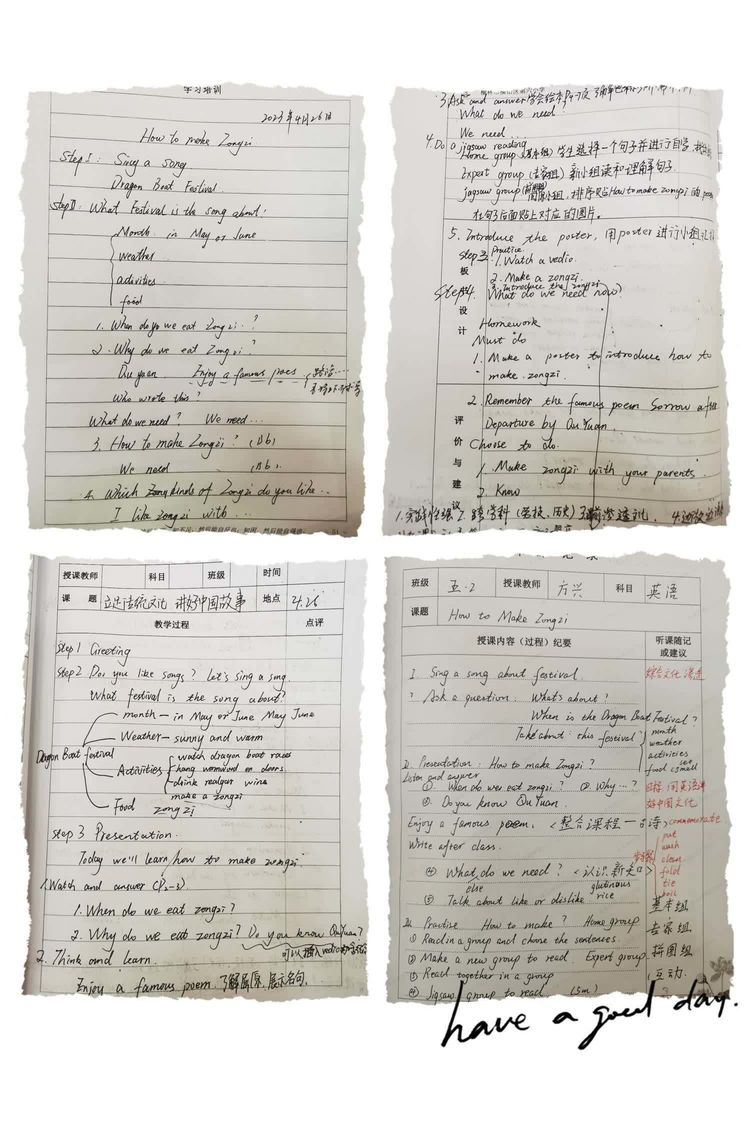 学习培训
2023年4月26日
How to make Zongzi
Step I: Sing a song
Dragon Boat Festival
Step II: What Festival is the song about?
Month in May or June
weather
activities
food
1. When do yo we eat Zongzi ?
2. Why do we eat Zongzi ?
Qu yuan Enjoy a famous poes
Who wrote this?
What do we need? We need...
3. How to make Zongzi?
We need
4. Which kinds of Zongzi do you like..
I like zongzi with ...
3. Ask and answer 学会绘本P4-7页
What do we need
We need
4. Do a jigsaw reading
Home group (基本组) 学生选择一个句子并进行自学
Expert group (专家组) 新小组读和理解句子.
jagsaw group 排序贴出How to make zongzi 的
在句子后面贴上对应的图片。
5. Introduce the poster, 用poster进行小组汇报
Step 3 Practice
1. Watch a vedio.
2. Make a zongzi.
3. Introduce the zongzi
Step 4. What do we need now?
板
设
计
Homework
Must do
1. Make a poster to introduce how to
make zongzi.
2. Remember the famous poem Sorrow after
Departure by Qu Yuan.
评
价
与
建
议
Choose to do.
1. Make zongzi with your parents.
2. Know
2. 跨学科
授课教师 科目 班级 时间
课题 立足传统文化 讲好中国故事 地点 4.26
教学过程 点评
Step 1 Greeting
Step 2 Do you like songs? Let's sing a song.
What festival is the song about?
month — in May or June May June
Weather — sunny and warm
Dragon Boat festival
Activities
watch dragon boat races
hang wormwood on doors
drink realgar wine
make a zongzi
Food zongzi
Step 3 Presentation.
Today we'll learn how to make zongzi
1. Watch and answer (P2-3)
1. When do we eat zongzi?
2. Why do we eat zongzi? Do you know Qu Yuan?
可以插入vedio
2. Think and learn.
Enjoy a famous poem 了解屈原, 展示名句.
班级 五.2 授课教师 方兴 科目 英语
课题 How to Make Zongzi
授课内容（过程）纪要 听课随记或建议
I. Sing a song about festival. 综合文化渗透
? Ask a question. What's about?
When is the Dragon Boat Festival?
Take about: this festival
month
weather
activities
food
II. Presentation: How to make Zongzi?
Listen and answer
①. When do we eat zongzi? ② Why...? 目标: 用英语讲
③. Do you know Qu Yuan. 好中国文化
Enjoy a famous poem. <整合课程—诗> commemorate
Write after class.
put
wash
clean
fold
tie
boil
④ What do we need? <认识新关口>
else glutinous rice
⑤ Talk about like or dislike
基本组
III. Practise How to make? Home group
专家组
① Read in a group and choose the sentences.
② Make a new group to read Expert group 拼图组
③ Read together in a group 互动.
④ Jigsaw group to read. (5m)
have a good day.